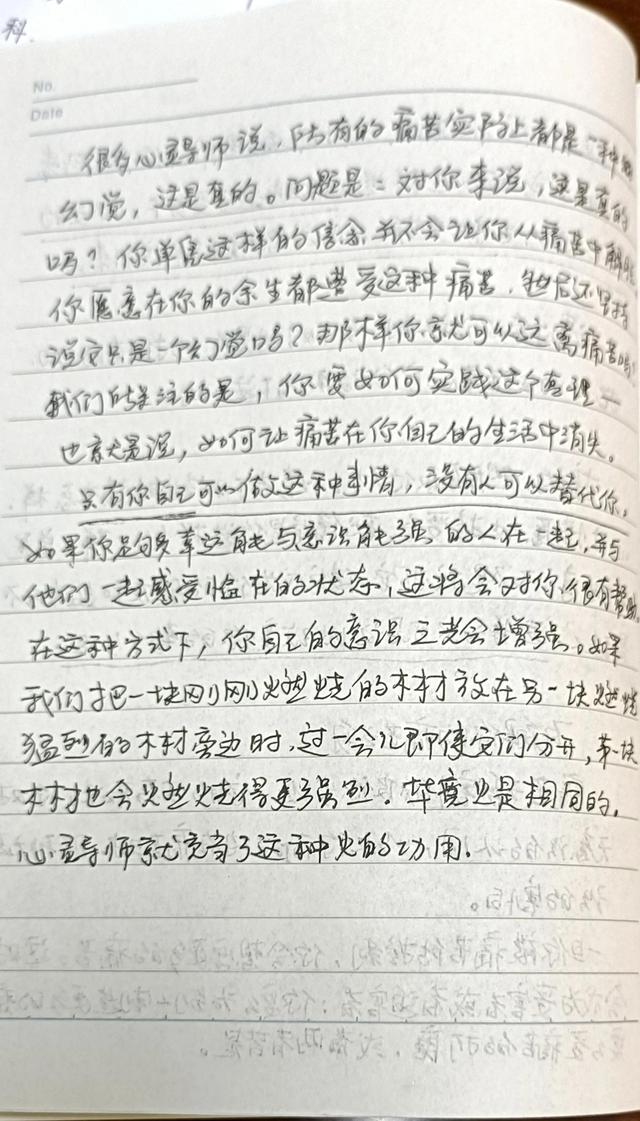 科.
No.
Date
很多心灵导师说,所有的痛苦实际上都是一种
幻觉,这是真的。问题是:对你来说,这是真的
吗?你单凭这样的信念并不会让你从痛苦中解脱
你愿意在你的余生都遭受这种痛苦,然后还坚持
说它只是一个幻觉吗?那样你就可以远离痛苦吗?
我们所关注的是,你要如何实践这个真理一
也就是说,如何让痛苦在你自己的生活中消失。
只有你自己可以做这种事情,没有人可以替代你。
如果你足够幸运能与意识能强的人在一起,并与
他们一起感受临在的状态,这将会对你很有帮助。
在这种方式下,你自己的意识立老会增强。如果
我们把一块刚刚燃烧的木材放在另一块燃烧
猛烈的木材旁边时,过一会儿即使它们分开,第一块
木材也会燃烧得更强烈。毕竟火是相同的,
心灵导师就充当了这种火的功用.